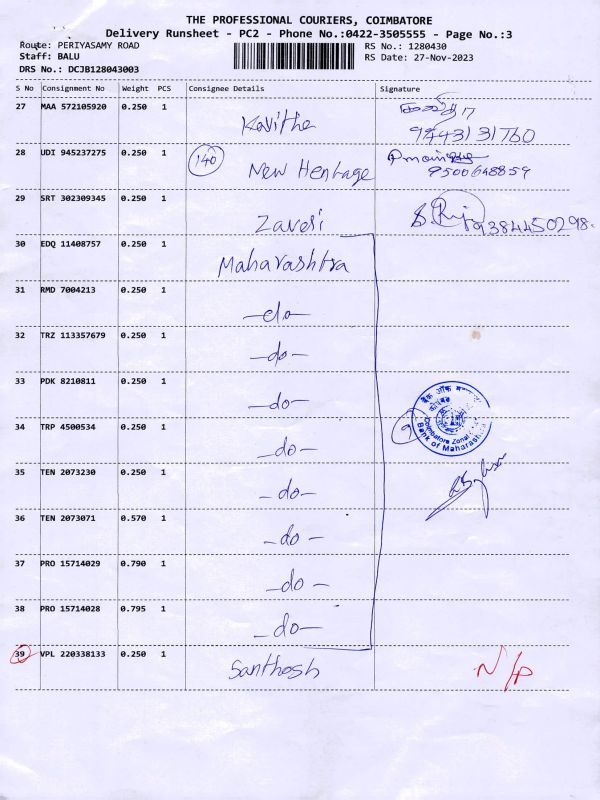 THE PROFESSIONAL COURIERS, COIMBATORE
Delivery Runsheet - PC2 - Phone No.:0422-3505555 - Page No.:3
Route: PERIYASAMY ROAD RS No.: 1280430
Staff: BALU RS Date: 27-Nov-2023
DRS No.: DCJB128043003
S No Consignment No Weight PCS Consignee Details Signature
27 MAA 572105920 0.250 1 Kavitha
9443131760
28 UDI 945237275 0.250 1 140 New Heritage
9500648859
29 SRT 302309345 0.250 1 Zaveri
9384450298
30 EDQ 11408757 0.250 1 Maharashtra
31 RMD 7004213 0.250 1 -do-
32 TRZ 113357679 0.250 1 -do-
33 PDK 8210811 0.250 1 -do-
34 TRP 4500534 0.250 1 -do-
Coimbatore Zonal
Bank of Maharashtra
35 TEN 2073230 0.250 1 -do-
36 TEN 2073071 0.570 1 -do-
37 PRO 15714029 0.790 1 -do-
38 PRO 15714028 0.795 1 -do-
39 VPL 220338133 0.250 1 Santhosh N/P